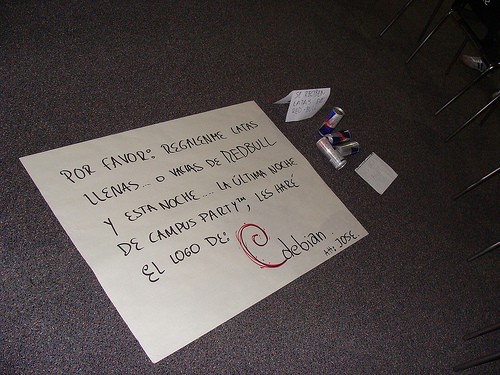 POR FAVOR: REGALENME LATAS
LLENAS... O VACIAS DE REDBULL
Y ESTA NOCHE.... LA ÚLTIMA NOCHE
DE CAMPUS PARTY™, LES HARÉ
EL LOGO DE: debian
Att: JOSE.
SE RECIBEN
LATAS DE
RED BULL